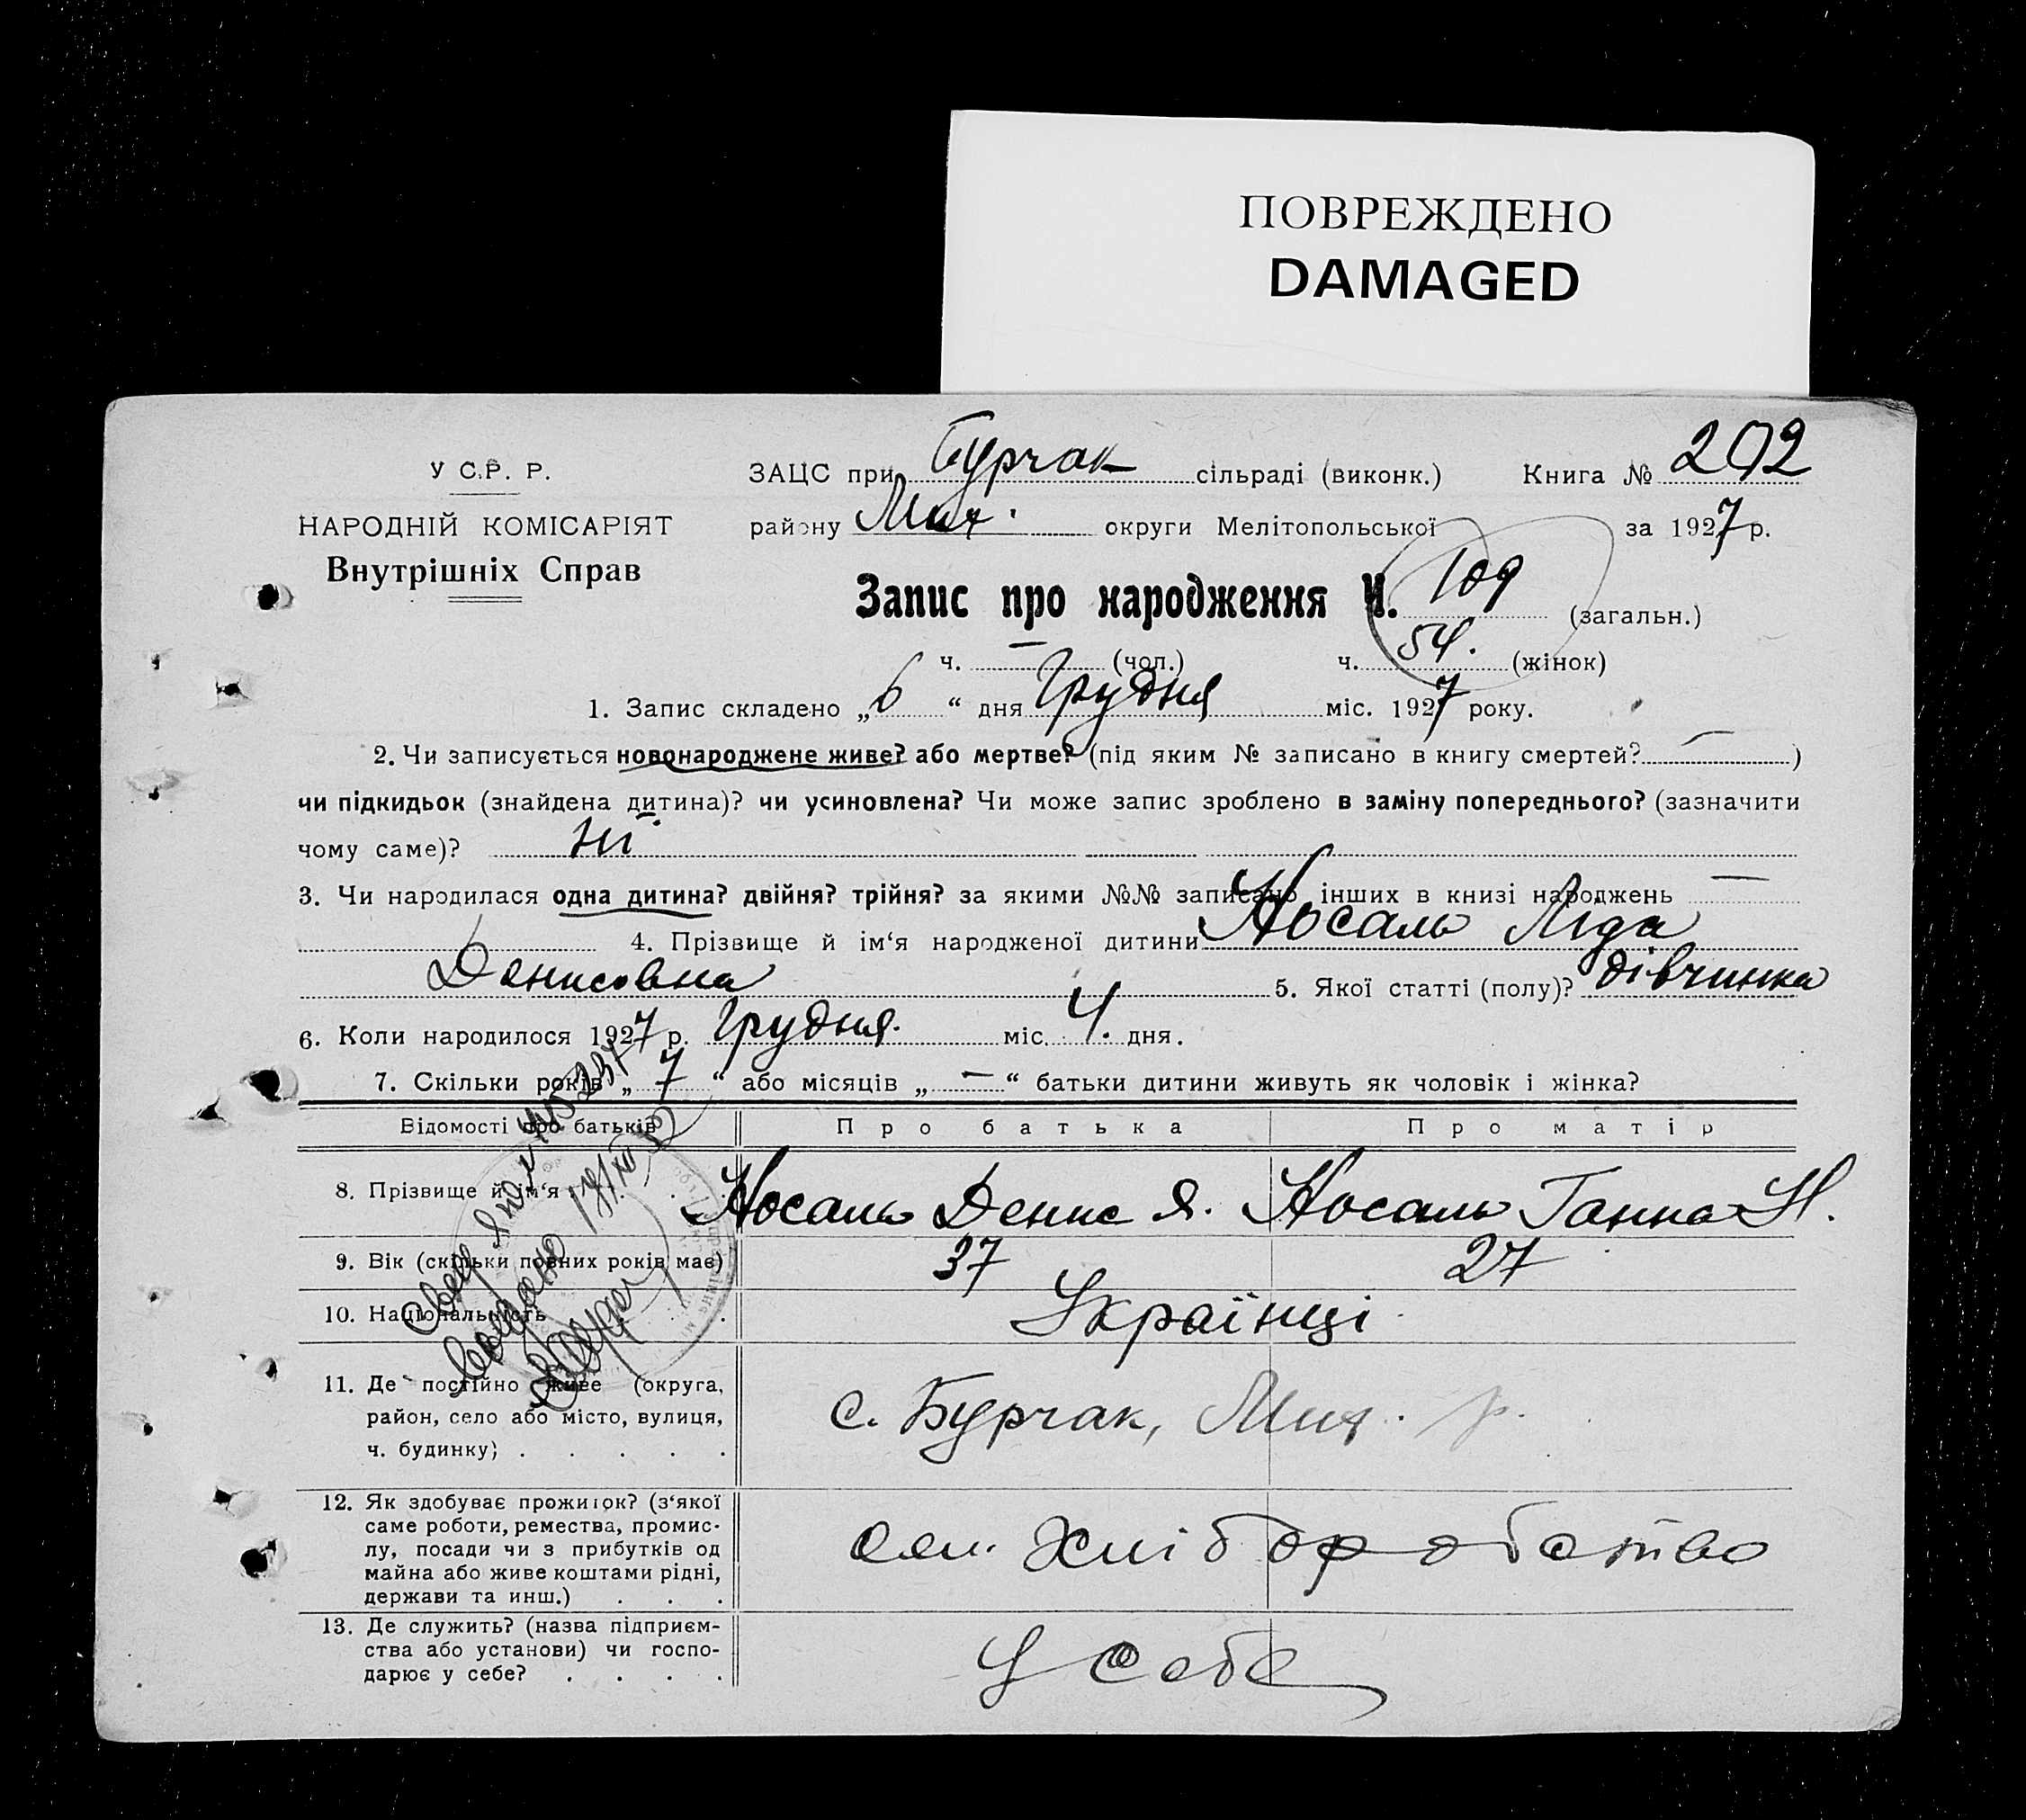 ПОВРЕЖДЕНО
DAMAGED
У С.Р. Р.
НАРОДНІЙ КОМІСАРІЯТ
Внутрішніх Справ
ЗАЦС при Бурчак сільраді (виконк.) Книга № 202
району Мих. округи Мелітопольської за 1927 р.
Запис про народження Ч. 109 (загальн.)
ч. — (чол.) ч. 54. (жінок)
1. Запис складено „6“ дня Грудня міс. 1927 року.
2. Чи записується новонароджене живе? або мертве? (під яким № записано в книгу смертей? — )
чи підкидьок (знайдена дитина)? чи усиновлена? Чи може запис зроблено в заміну попереднього? (зазначити
чому саме)? Ні
3. Чи народилася одна дитина? двійня? трійня? за якими №№ записано інших в книзі народжень —
4. Прізвище й ім‘я народженої дитини Носаль Ліда
Денисовна 5. Якої статті (полу)? дівчинка
6. Коли народилося 1927 р. Грудня міс. 4. дня.
7. Скільки років „7“ або місяців „—“ батьки дитини живуть як чоловік і жінка?
Відомості про батьків Про батька Про матір
8. Прізвище й ім‘я Носаль Денис Я. Носаль Ганна Н.
9. Вік (скільки повних років має) 37 27
10. Національність Українці
11. Де постійно живе (округа,
район, село або місто, вулиця,
ч. будинку) с. Бурчак, Мих. р.
12. Як здобуває прожиток? (з‘якої
саме роботи, ремества, промис-
лу, посади чи з прибутків од
майна або живе коштами рідні,
держави та инш.) Хліборобство
13. Де служить? (назва підприєм-
ства або установи) чи госпо-
дарює у себе? У себе